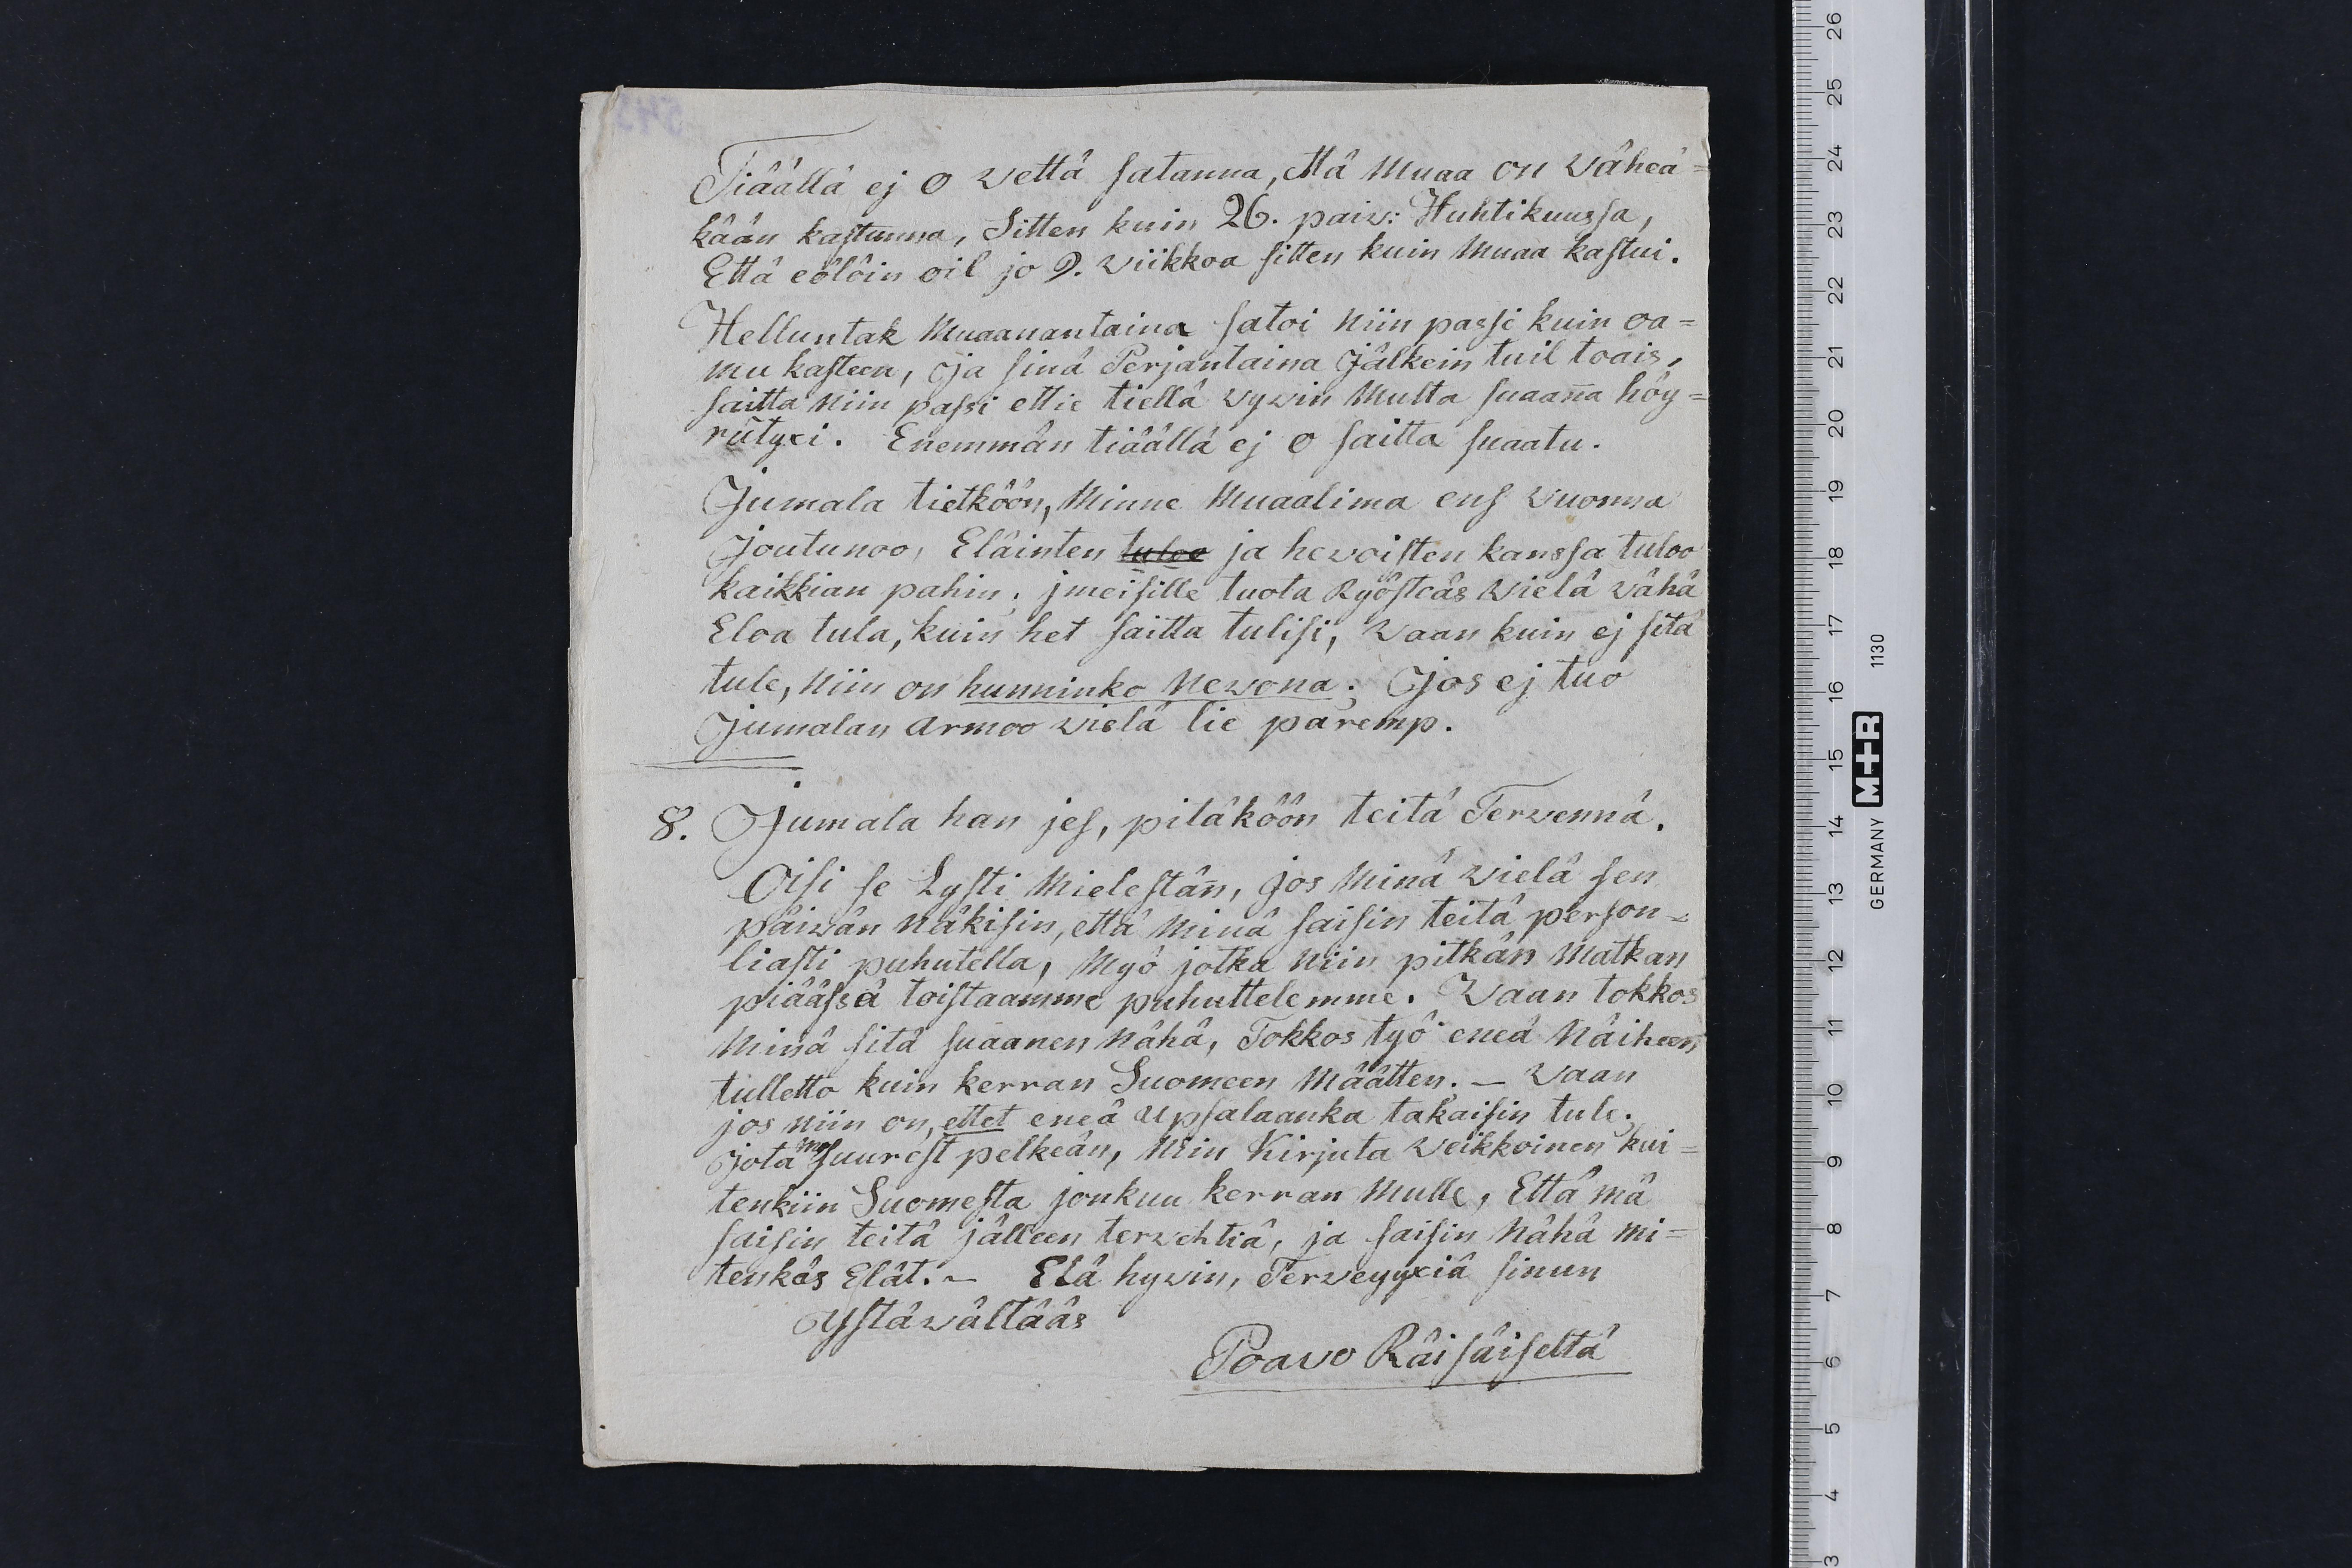 Tiäällä ej o vettä satanna, että Muaa on väheä=
kään kastunna, Sitten kuin 26. paiv: Huhtikuussa,
Että eölöin oil jo 9. viikkoa sitten kuin Muaa kastui.
Helluntak Muaanantaina satoi Niin passi kuin oa=
mu kasteen, ja sinä Perjantaina jälkein tuil toais,
saitta Niin passi ettie tiellä vyvin Multa suaan̄a höy=
rütyxi. Enemmän tiäällä ej o saitta suaatu.
Jumala tietköön, Minne Muaalima ens vuonna
Joutunoo, Eläinten ~~tuloo~~ ja hevoisten kanssa tuloo
kaikkian pahin; jmeisille tuota Ryösteäs vielä vähä
Eloa tula, kuin het saitta tulisi, vaan kuin ej sitä
tule, Niin on hunninko Nevona; Jos ej tuo
Jumalan Armoo vielä lie päremp.
8. Jumala han jes, pitäköön teitä Tervennä.
Oisi se Lysti Mielestän̄, jos Minä vielä sen
päivän Näkisin, että Minä saisin teitä person=
liasti puhutella, Myö jotka Niin pitkän Matkan
piäässä toistaamme puhuttelemme. Vaan tokkos
Minä sitä suaanen Nähä, Tokkos työ eneä Näiheen
tulletto kuin kerran Suomeen Määtten. — Vaan
jos Niin on, ettet eneä Upsalaanka takaisin tule;
jotä mä suurest pelkeän, Niin Kirjuta Veikkoinen kui=
tenkiin Suomesta jonkuu kerran Mulle, Että mä
saisin teitä jälleen tervehtiä, ja saisin Nähä mi=
tenkäs Elät. — Elä hyvin, Terveyyxiä sinun
Ystävältääs
Poavo Räisäiseltä
26
25
24
23
22
21
20
19
18
17
16
15
14
13
12
11
10
9
8
7
6
5
4
3
GERMANY M+R 1130